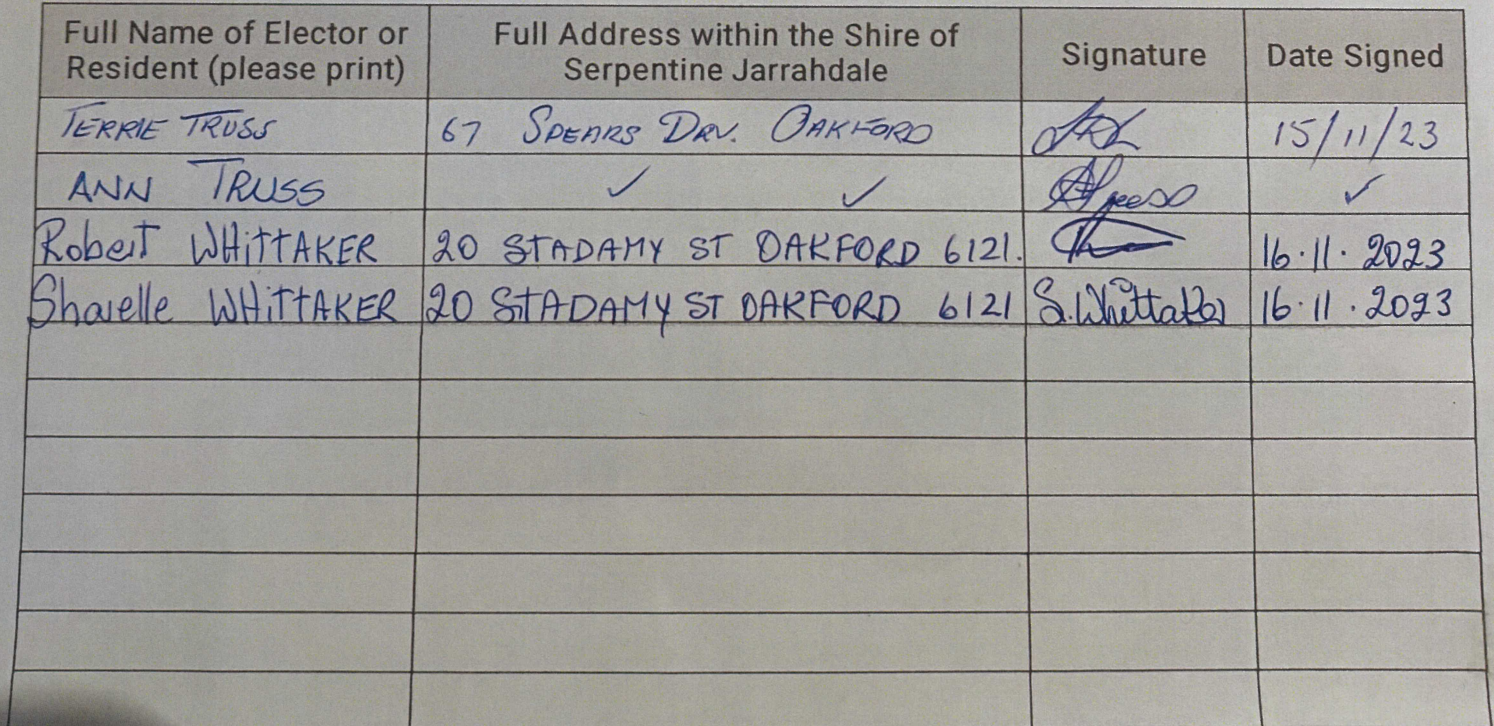 Full Name of Elector or Resident (please print) Full Address within the Shire of Serpentine Jarrahdale Signature Date Signed
TERRIE TRUSS 67 SPEARS DRV. OAKFORD 15/11/23
ANN TRUSS ✓ ✓ ✓
Robert WHITTAKER 20 STADAMY ST OAKFORD 6121. 16.11.2023
Sharelle WHITTAKER 20 STADAMY ST OAKFORD 6121 S.Whittaker 16.11.2023